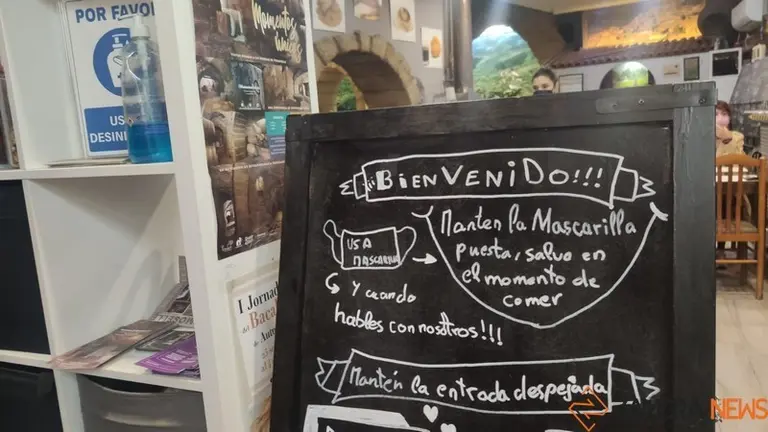 POR FAVOR
US
DESIN
Momentos
únicos
¡¡¡BiENVENiDO!!!
USA
MASCARILLA
Manten la Mascarilla
puesta, salvo en
el momento de
comer
Y cuando
hables con nosotros!!!
Mantén la entrada despejada
I Jornad
del Baca
de Autr
NEWS